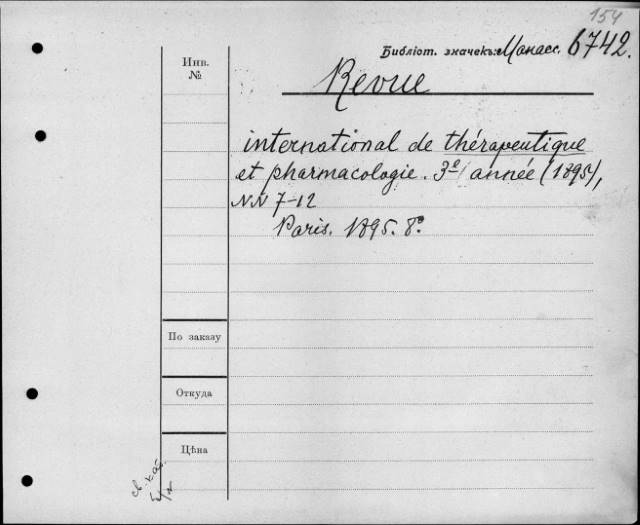 154
Библіот. значекъ: Манасс. 6742.
Инв.
№
Revue
international de thérapeutique
et pharmacologie. 3e année (1895),
NN 7-12
Paris. 1895. 8°.
По заказу
Откуда
Цѣна
св. кат.